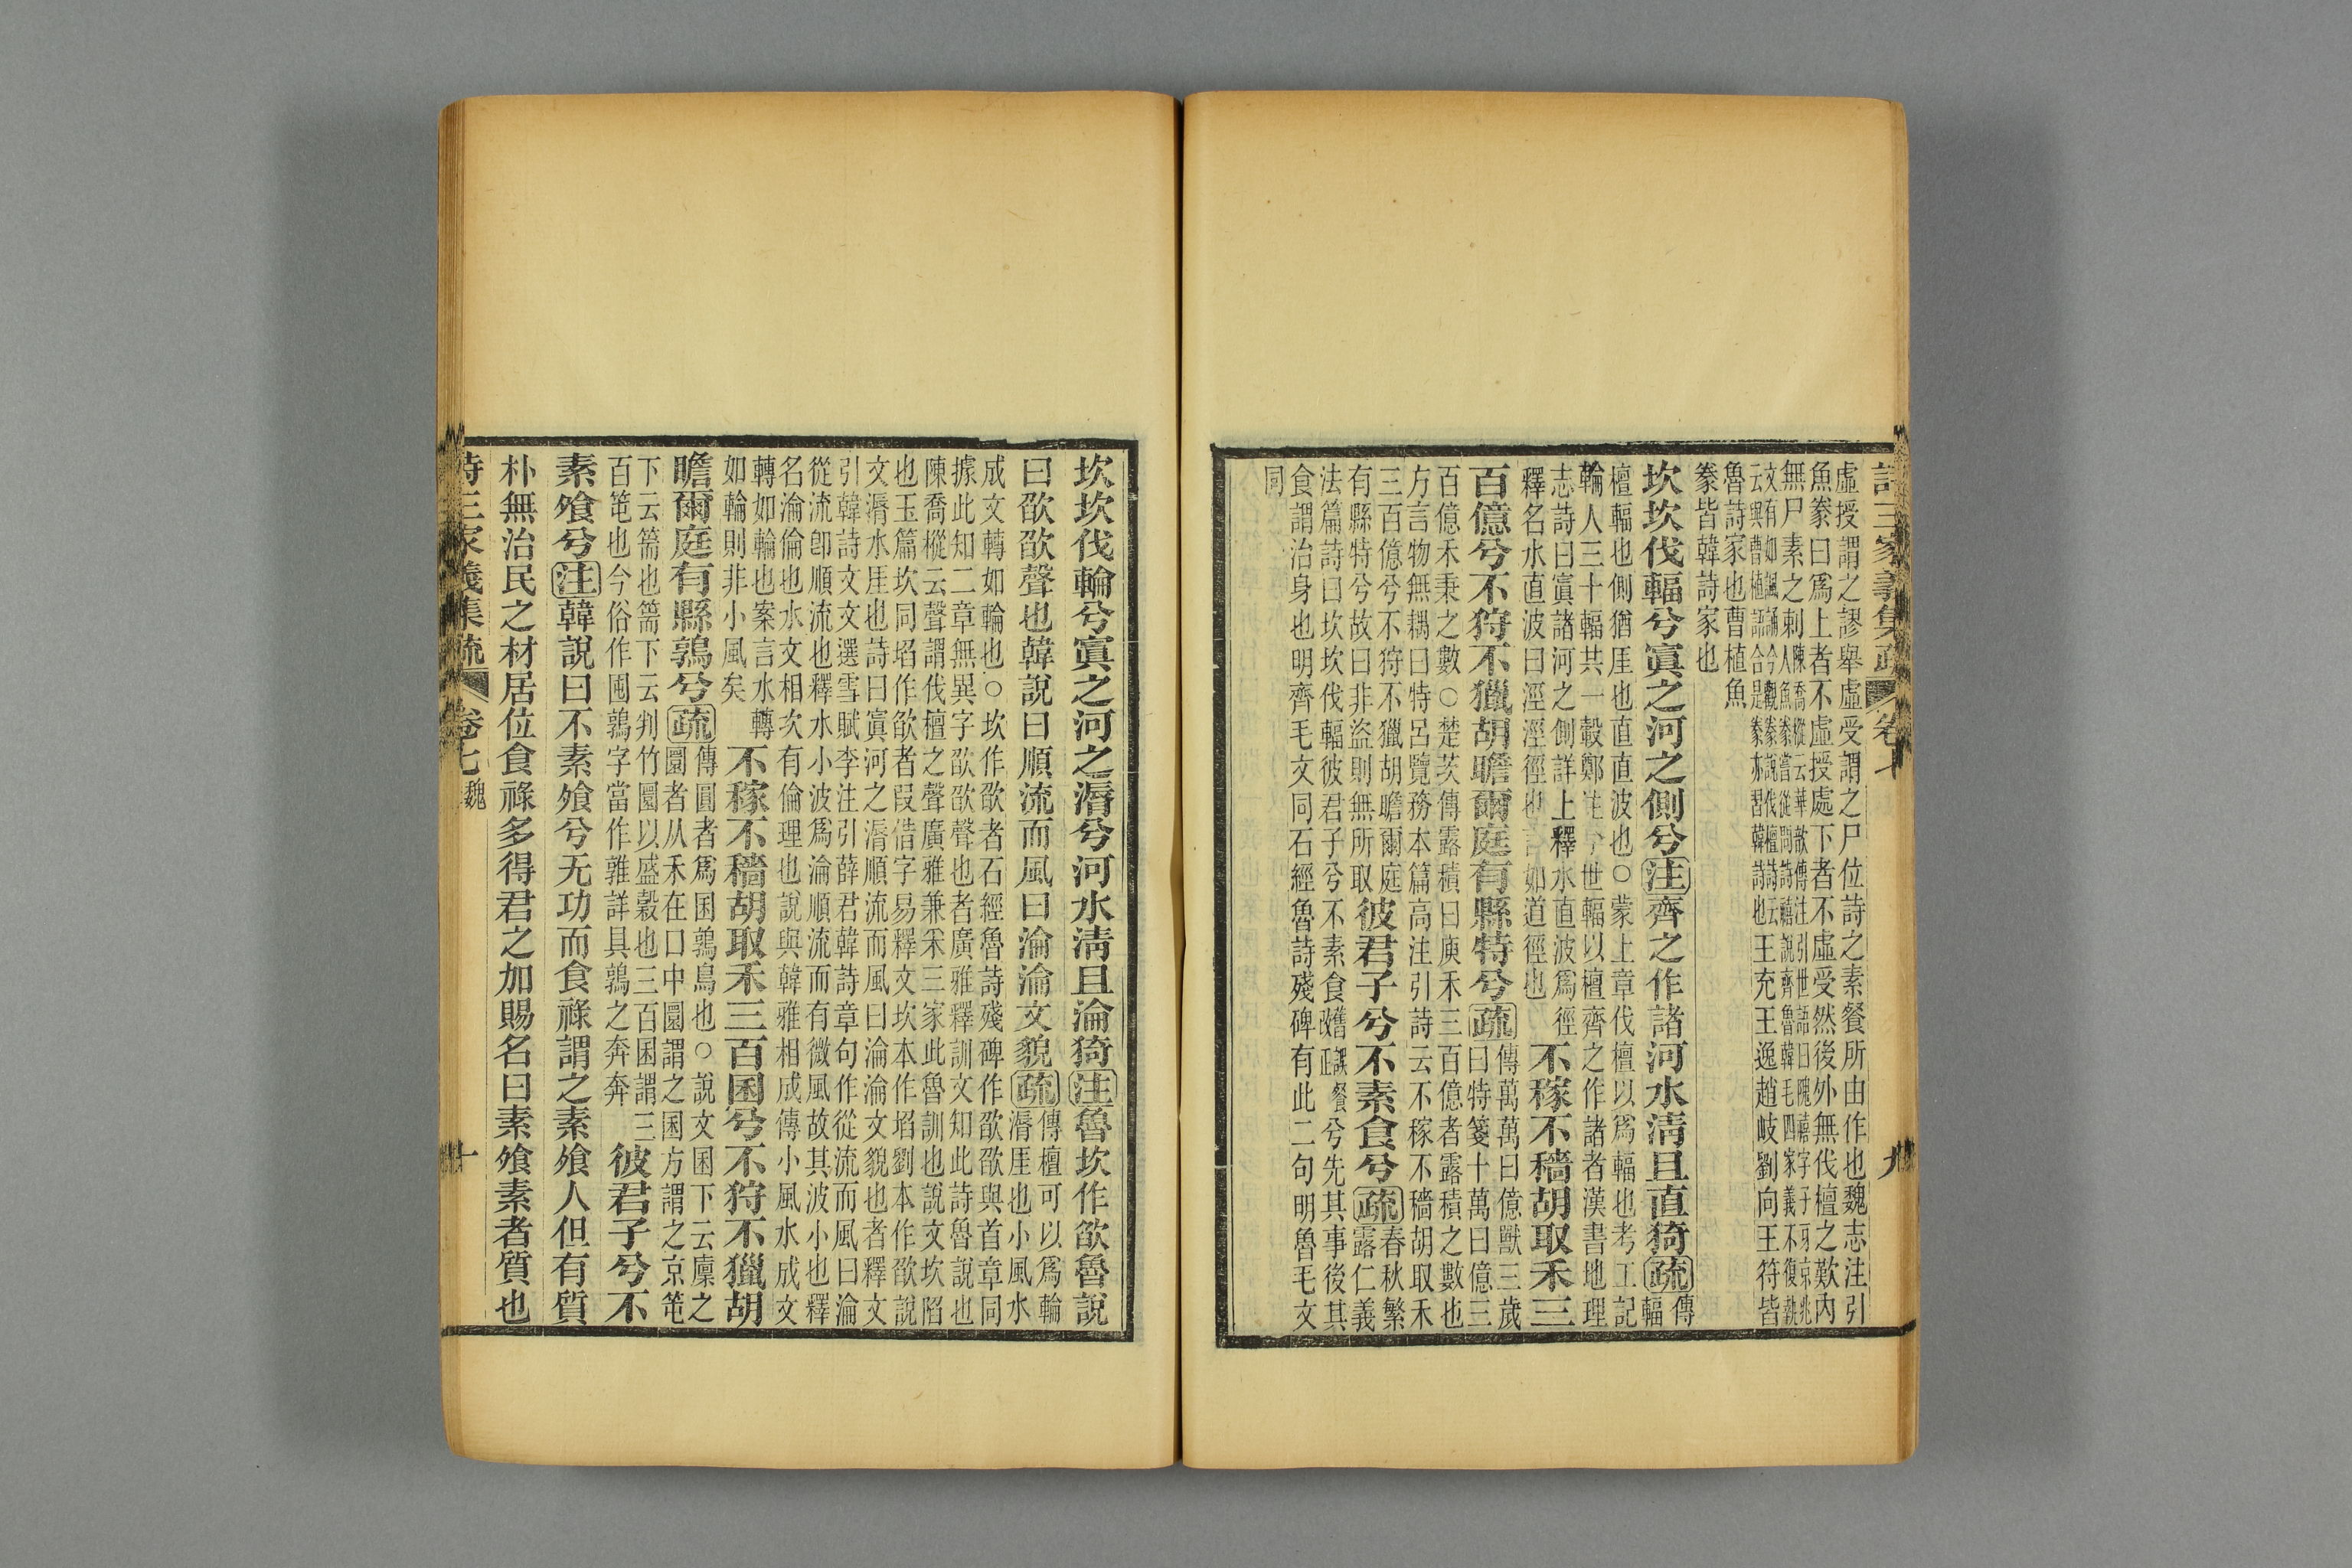 詩三家義集疏 卷七 九
虛授謂之謬舉虛受謂之尸位詩之素餐所由作也魏志注引
魚豢曰爲上者不虛授處下者不虛受然後外無伐檀之歎內
無尸素之刺陳喬樅云華歆傳注引世語曰隗禧字子牙京兆
人魚豢嘗從問詩禧說齊魯韓毛四家義不復執
文有如諷誦今觀豢說伐檀詩云
云與曹植語合是豢亦習韓詩也王充王逸趙岐劉向王符皆
魯詩家也曹植魚
豢皆韓詩家也
坎坎伐輻兮寘之河之側兮注齊之作諸河水清且直猗疏傳
輻
檀輻也側猶厓也直直波也○蒙上章伐檀以爲輻也考工記
輪人三十輻共一轂鄭世輻以檀齊之作諸者漢書地理
志詩曰寘諸河之側詳上釋水直波爲徑
釋名水直波曰涇涇徑也言如道徑也
不稼不穡胡取禾三
百億兮不狩不獵胡瞻爾庭有縣特兮疏傳萬萬曰億獸三歲
曰特箋十萬曰億三
百億禾秉之數○楚茨傳露積曰庾禾三百億者露積之數也
方言物無耦曰特呂覽務本篇高注引詩云不稼不穡胡取禾
三百億兮不狩不獵胡瞻爾庭
有縣特兮故曰非盜則無所取
彼君子兮不素食兮疏春秋繁
露仁義
法篇詩曰坎坎伐輻彼君子兮不素食舊譌餐
改正兮先其事後其
食謂治身也明齊毛文同石經魯詩殘碑有此二句明魯毛文
同
坎坎伐輪兮寘之河之漘兮河水清且淪猗注魯坎作欿魯說
曰欿欿聲也韓說曰順流而風曰淪淪文貌疏傳檀可以爲輪
漘厓也小風水
成文轉如輪也○坎作欿者石經魯詩殘碑作欿欿與首章同
據此知二章無異字欿欿聲也者廣雅釋訓文知此詩魯說也
陳喬樅云聲謂伐檀之聲廣雅兼釆三家此魯訓也說文坎陷
也玉篇坎同埳作欿者叚借字易釋文坎本作埳劉本作欿說
文漘水厓也詩曰寘河之漘順流而風曰淪淪文貌也者釋文
引韓詩文文選雪賦李注引薛君韓詩章句作從流而風曰淪
從流卽順流也釋水小波爲淪順流而有微風故其波小也釋
名淪倫也水文相次有倫理也說與韓雅相成傳小風水成文
轉如輪也案言水轉
如輪則非小風矣
不稼不穡胡取禾三百囷兮不狩不獵胡
瞻爾庭有縣鶉兮疏傳圓者爲囷鶉鳥也○說文囷下云廩之
圜者从禾在囗中圜謂之囷方謂之京笔
下云篅也篅下云判竹圜以盛穀也三百囷謂三
百笔也今俗作囤鶉字當作雜詳具鶉之奔奔
彼君子兮不
素飧兮注韓說曰不素飧兮无功而食祿謂之素飧人但有質
朴無治民之材居位食祿多得君之加賜名曰素飧素者質也
詩三家義集疏 卷七 魏 十